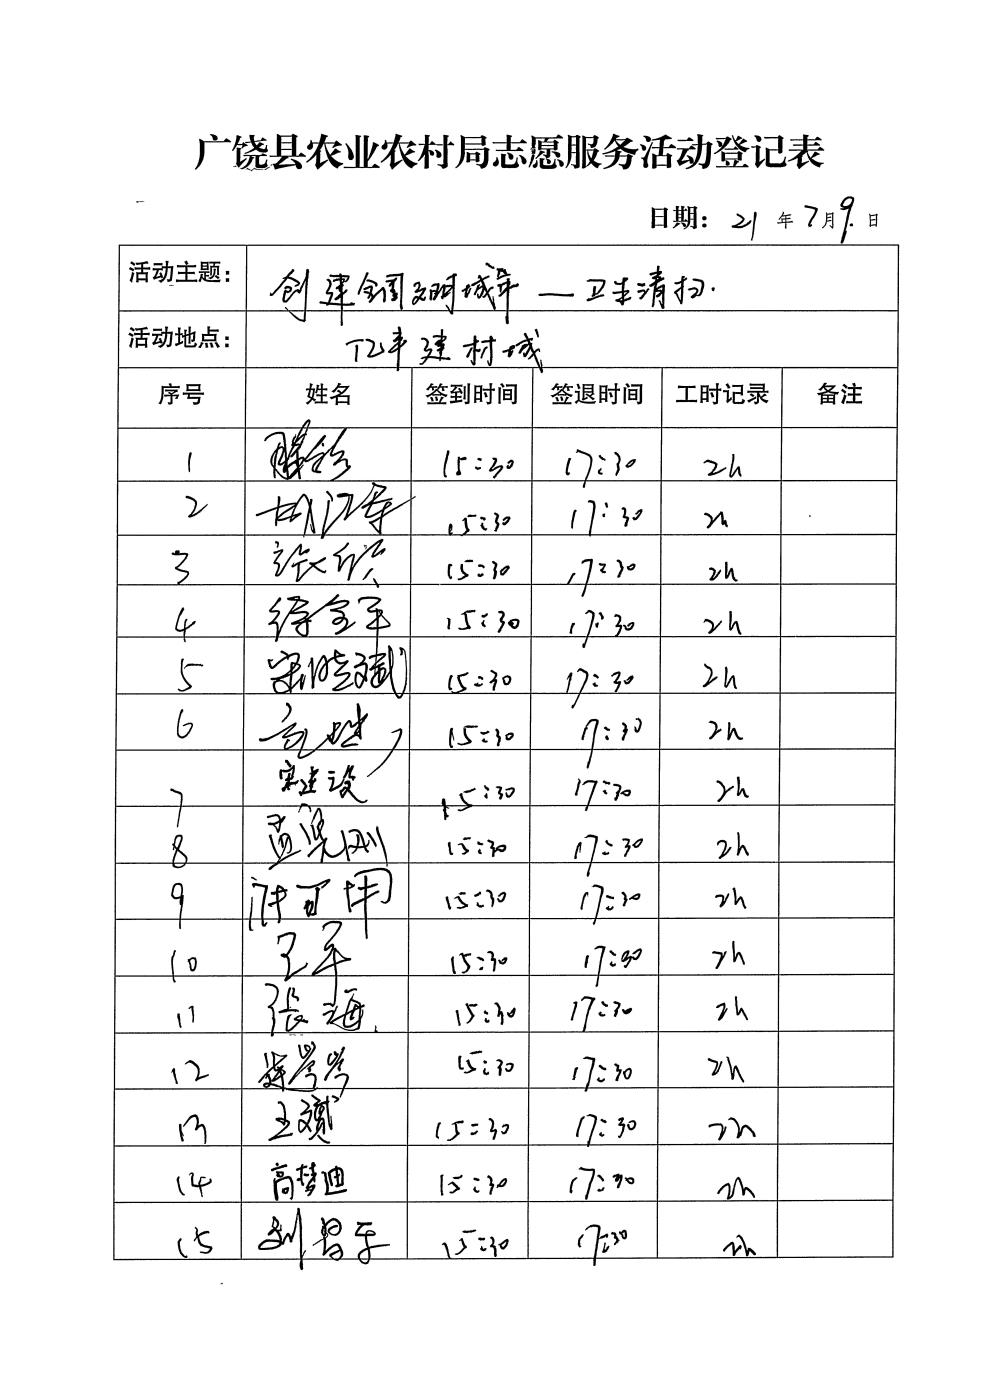 广饶县农业农村局志愿服务活动登记表
日期: 21 年 7 月 9 日
活动主题: 创建全国文明城市 — 卫生清扫.
活动地点: 亿丰建材城
序号 姓名 签到时间 签退时间 工时记录 备注
1 15:30 17:30 2h
2 15:30 17:30 2h
3 15:30 17:30 2h
4 15:30 17:30 2h
5 宋晓斌 15:30 17:30 2h
6 15:30 17:30 2h
7 宋建设 15:30 17:30 2h
8 15:30 17:30 2h
9 15:30 17:30 2h
10 王军 15:30 17:30 2h
11 张海 15:30 17:30 2h
12 15:30 17:30 2h
13 王斌 15:30 17:30 2h
14 高梦迪 15:30 17:30 2h
15 15:30 17:30 2h